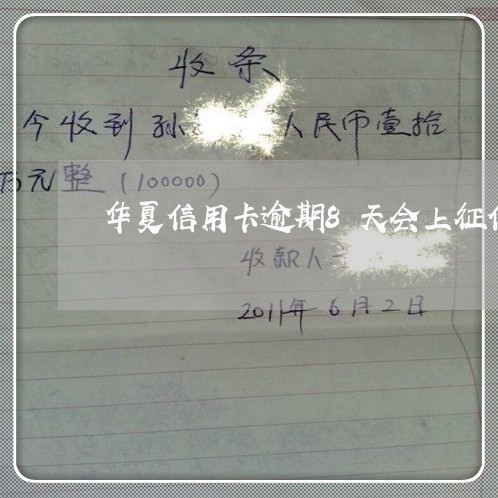 收条
今收到孙 人民币壹拾
万元整(100000)
华夏信用卡逾期8天会上征信
收款人
2011年6月2日